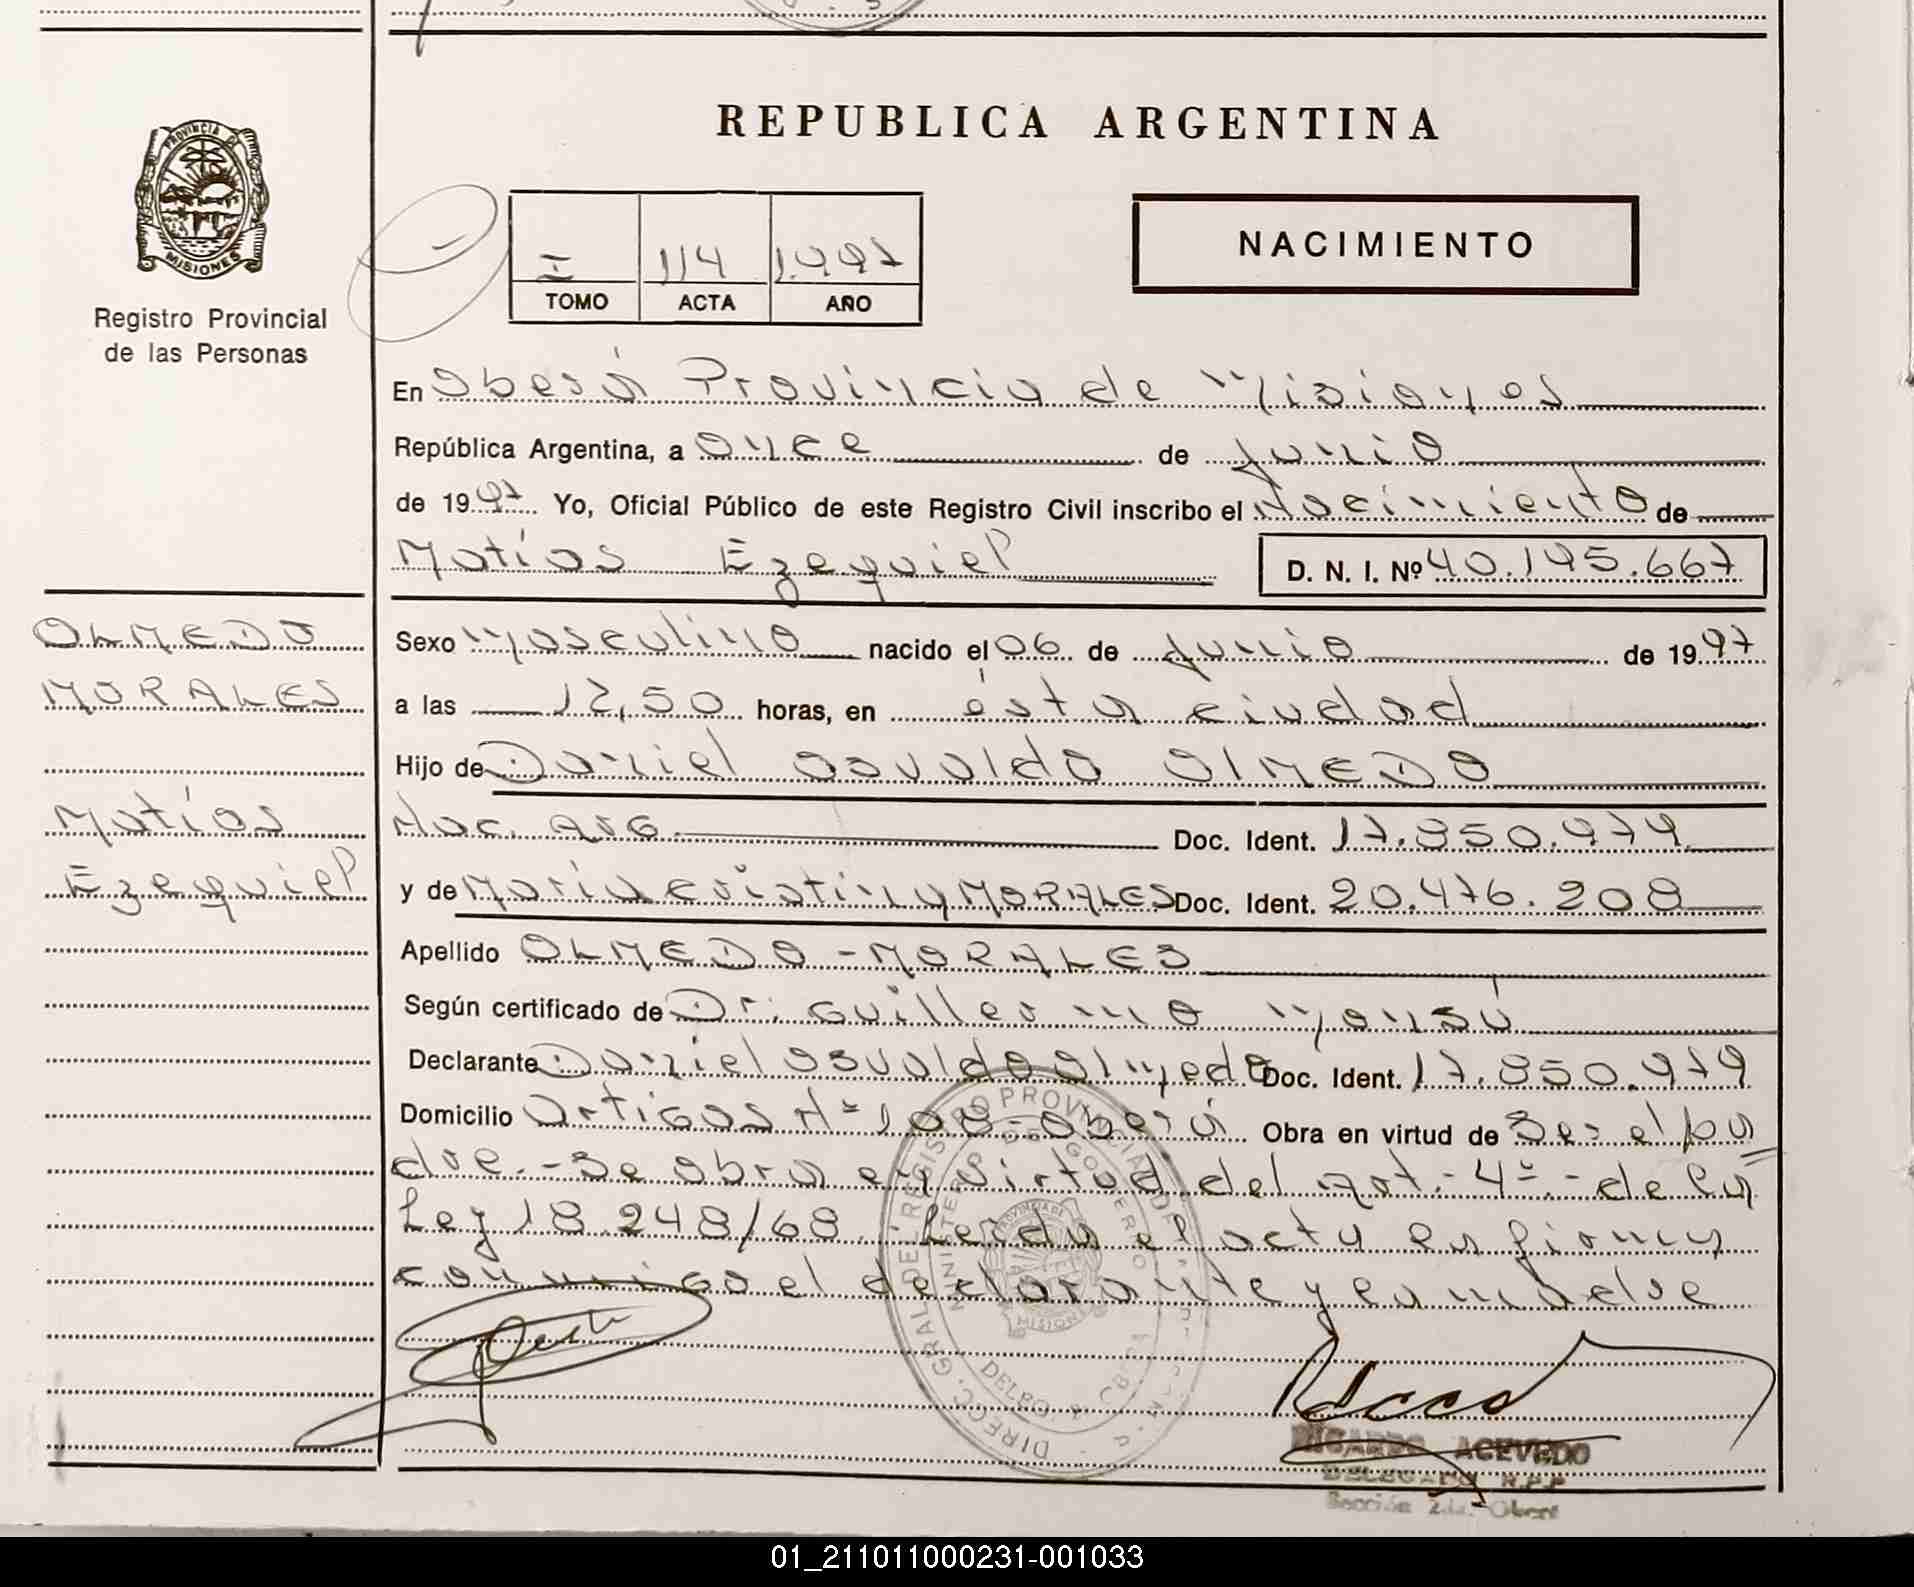 REPUBLICA ARGENTINA
PROVINCIA DE
MISIONES
Registro Provincial
de las Personas
I 114 1.997
TOMO ACTA AÑO
NACIMIENTO
En Oberá Provincia de Misiones
República Argentina, a once de junio
de 1997 Yo, Oficial Público de este Registro Civil inscribo el Nacimiento de
Matías Ezequiel D. N. I. Nº 40.195.667
OLMEDO
MORALES
Matías
Ezequiel
Sexo Masculino nacido el 06 de junio de 1997
a las 12,50 horas, en ésta ciudad
Hijo de Daniel Osvaldo OLMEDO
Nac. Arg Doc. Ident. 17.850.979
y de María Cristina MORALES Doc. Ident. 20.476.208
Apellido OLMEDO - MORALES
Según certificado de Dr. Guillermo
Declarante Daniel Osvaldo Olmedo Doc. Ident. 17.850.979
Domicilio Artigas Nº 108 - Oberá Obra en virtud de Ser el pa
dre.- Se obra en virtud del Art.- 4º.- de la
Ley 18.248/68. Leida el acta la firma
conmigo el declarante y la madre
RICARDO ACEVEDO
DELEGADO R.P.P
Sección 2da. - Oberá
01_211011000231-001033